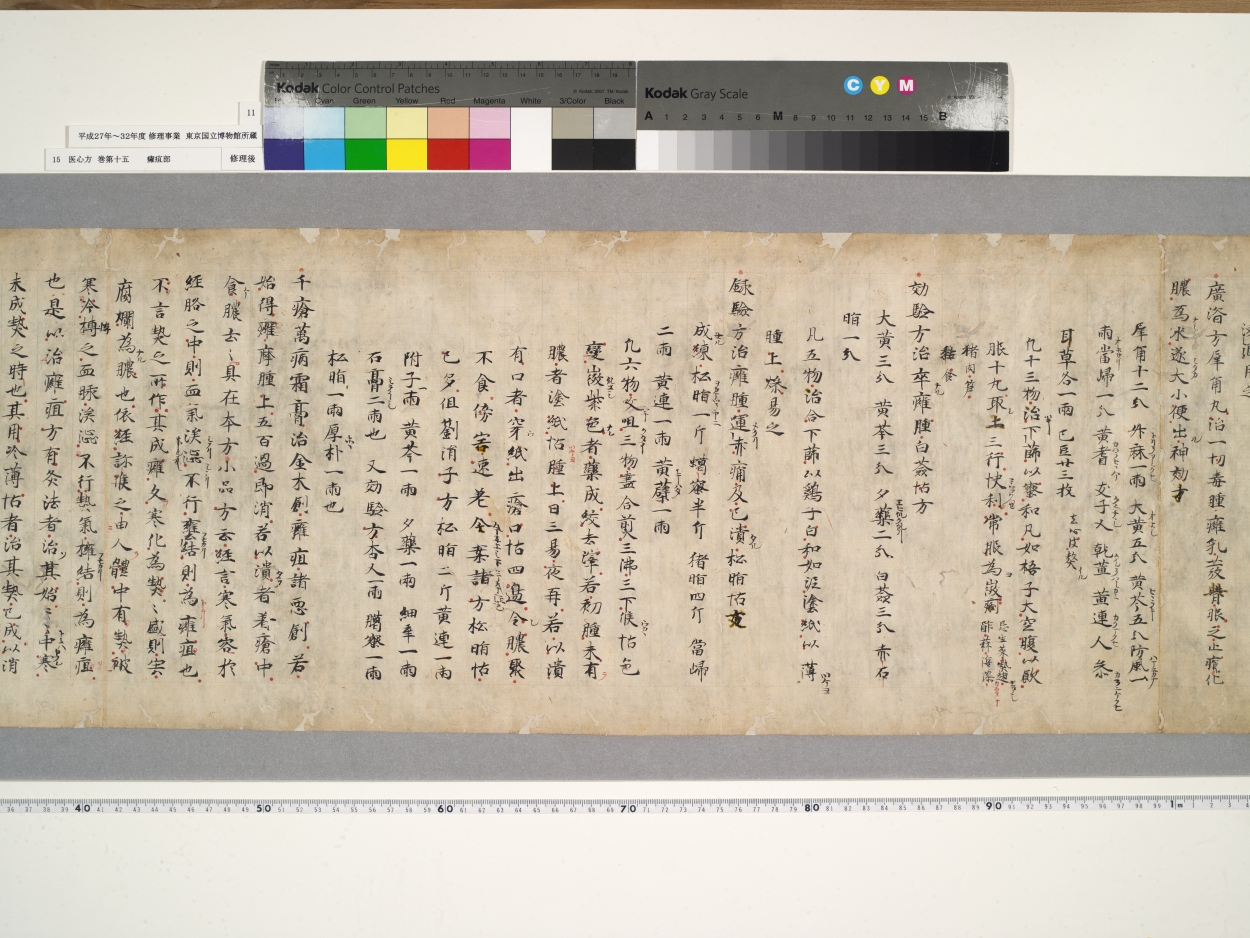 Kodak Color Control Patches
Cyan Green Yellow Red Magenta White 3/Color Black
Kodak Gray Scale
C Y M
A 1 2 3 4 5 6 M 8 9 10 11 12 13 14 15 B
11
平成27年〜32年度 修理事業 東京国立博物館所蔵
15 医心方 巻第十五 癰疽部 修理後
廣濟方犀角丸治一切毒腫癰乳發背服之止瘡化
膿為水遂大小便出神効方
犀角十二分 升麻一兩 大黄五分 黄芩五分 防風一
兩 當歸一分 黄耆 人 乾藍 黄連 人參
甘草各一兩 巴豆廿三枚
九十三物治下篩以蜜和丸如梧子大空腹以飲
服十九取上三行快利常服為微
猪肉
効驗方治卒癰腫白蘞怗方
大黄三分 黄芩三分 夕藥二分 白蘞三分 赤石
脂一分
凡五物治合下篩以鶏子白和如泥塗紙以薄
腫上燥易之
録驗方治癰腫運赤痛及已潰松脂怗方
成練松脂一斤 蠟蜜半斤 猪脂四斤 當歸
二兩 黄連一兩 黄蘗一兩
九六物㕮咀三物盡合煎三沸三下候怗色
變微紫色者藥成絞去滓若初腫未有
膿者塗紙怗腫上日三易夜再若以潰
有口者穿紙出瘡口怗四邊令膿聚
不食傍害速老令葉諸方松脂怗
已多但劉涓子方松脂二斤黄連一兩
附子一兩 黄芩一兩 夕藥一兩 細辛一兩
石膏二兩也 又効驗方 一兩 臈蜜一兩
松脂一兩厚朴一兩也
千瘡萬病霜膏治金木創癰疽諸悪創若
始得癰摩腫上五百過即消若以潰者著瘡中
食膿去々具在本方小品方云經言寒氣客於
經胳之中則血氣洓澀不行壅結則為癰疽也
不言熱之所作其成癰久寒化為熱々盛則宍
腐爛為膿也依經診候之由人體中有熱被
寒冷搏之血脈洓澀不行熱氣擁結則為癰疽
也是以治癰疽方有灸法者治其始々中寒
未成熱之時也其用冷薄怗者治其熱已成以消
40 50 60 70 80 90 1m